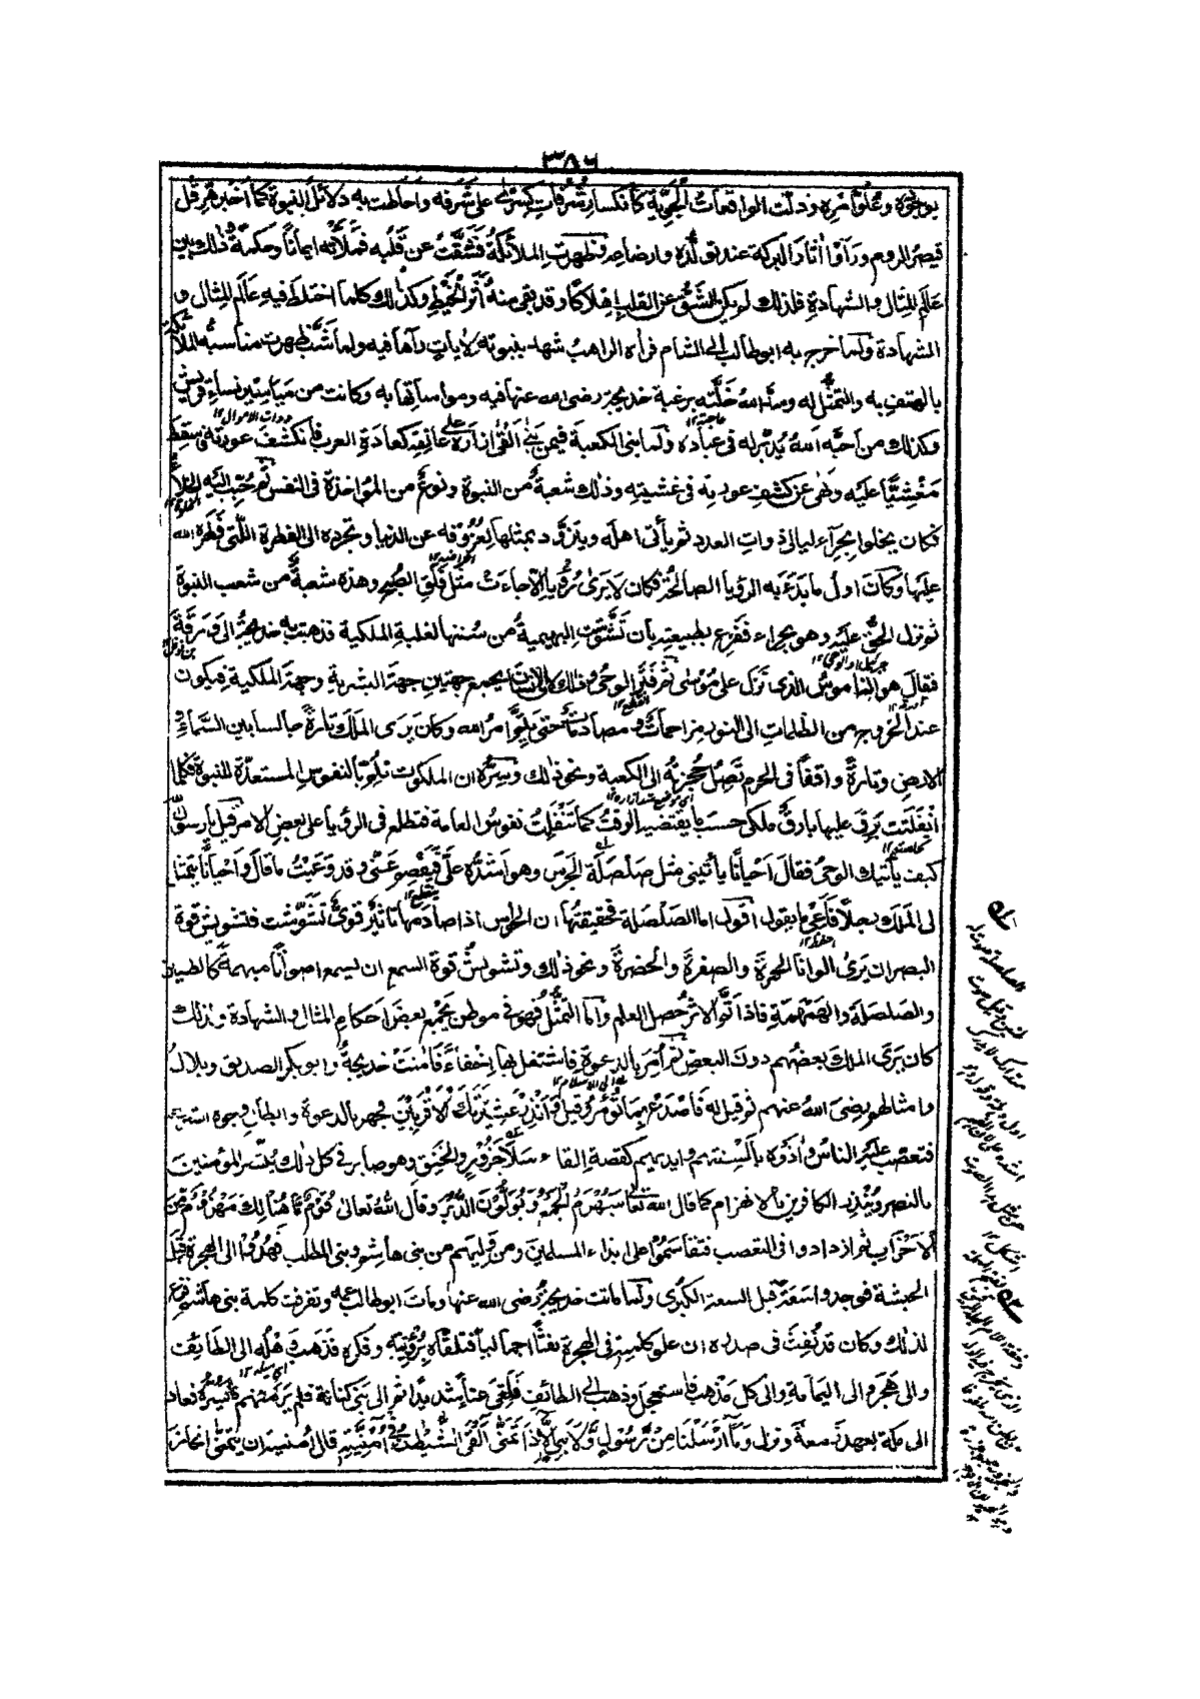 ٣٨٦
بوجوده وعلو امره ودلت الواقعات الجوية كانكسار شرفات كسرى على شرفه واحاطت به دلائل النبوة كما اخبر هرقل
قيصر الروم ورأوا اثار البركة عند تولده وارضاعه وظهرت الملائكة فشقت عن قلبه فملأته ايمانا وحكمة وذلك بين
عالم المثال والشهادة فلذلك لم يكن الشق عن القلب اهلاكا وقد بقي منه أثر المخيط وكذلك كلما اختلط فيه عالم المثال و
الشهادة ولما خرج به ابو طالب الى الشام فرأه الراهب شهد بنبوته لأيات رآها فيه ولما شب ظهرت مناسبة الملائكة
بالهتف به والتمثل له وسد الله خلته برغبة خديجة رضى الله عنها فيه ومواساتها به وكانت من مياسير نساء قريش
وكذلك من احبه الله يدبر له في عباده ولما بنى الكعبة فيمن بنى القى ازاره على عاتقه كعادة العرب فانكشف عورته فسقط
مغشيا عليه ونهى عن كشف عورته في غشيته وذلك شعبة من النبوة ونوع من المؤاخذة في النفس ثم حبب اليه الخلاء
فكان يخلوا بحراء ليالى ذوات العدد ثم يأتى اهله ويتزود بمثلها لعزوفه عن الدنيا وتجرده الى الفطرة التى فطره الله
عليها وكان اول ما بدئ به الرؤيا الصالحة فكان لا يرى رؤيا الا جاءت مثل فلق الصبح وهذه شعبة من شعب النبوة
ثم نزل الحق عليه وهو بحراء ففزع بطبيعته بان تشوشت البهيمية من سننها لغلبة الملكية فذهبت به خديجة الى ورقة
فقال هو الناموس الذى نزل على موسى ثم فتر الوحى وذلك لان الانسان يجمع جهتين جهة البشرية وجهة الملكية فيكون
عند الخروج من الظلمات الى النور مزاحمات ومصادمات حتى يتم امر الله وكان يرى الملك تارة جالسا بين السماء و
الارض وتارة واقفا في الحرم تصل حجزته الى الكعبة ونحو ذلك وسره ان الملكوت تلم بالنفوس المستعدة للنبوة فكلما
انفلتت برق عليها بارق ملكى حسب ما يقتضيه الوقت كما تنفلت نفوس العامة فتطلع في الرؤيا على بعض الامر قيل يارسول الله
كيف يأتيك الوحى فقال احيانا يأتينى مثل صلصلة الجرس وهو اشده على فيفصم عنى وقد وعيت ما قال واحيانا يتمثل
لى الملك رجلا فأعى ما يقول اقول اما الصلصلة فحقيقتها ان الحواس اذا صادمها تاثير قوى تشوشت فتشويش قوة
البصر ان يرى الوانا الحمرة والصفرة والخضرة ونحو ذلك وتشويش قوة السمع ان يسمع اصواتا مبهمة كالطنين
والصلصلة والهمهمة فاذا تم الاثر حصل العلم واما التمثل فهو في موطن يجمع بعض احكام المثال والشهادة ولذلك
كان يرى الملك بعضهم دون البعض ثم أمر بالدعوة فاشتغل بها اخفاء فامنت خديجة وابو بكر الصديق وبلال
وامثالهم رضى الله عنهم ثم قيل له فاصدع بما تؤمر وقيل وانذر عشيرتك الاقربين فجهر بالدعوة وابطال وجوه الشرك
فتعصب عليه الناس واذوه بألسنتهم وايديهم كقصة القاء سلا جزور والخنق وهو صابر في كل ذلك يبشر المؤمنين
بالنصر وينذر الكافرين بالانهزام كما قال الله تعالى سيهزم الجمع ويولون الدبر وقال الله تعالى جند ما هنالك مهزوم من
الاحزاب ثم ازدادوا في التعصب فتقاسموا على ايذاء المسلمين ومن وليهم من بنى هاشم وبنى المطلب فهدوا الى الهجرة قبل
الحبشة فوجدوا سعة قبل السعة الكبرى ولما ماتت خديجة رضى الله عنها ومات ابو طالب عمه وتفرقت كلمة بنى هاشم فزع
لذلك وكان قد نفث في صدره ان علو كلمته في الهجرة نفثا اجماليا فتلقاه برؤيته وفكره فذهب وهله الى الطائف
والى هجر والى اليمامة والى كل مذهب فاستعجل وذهب الى الطائف فلقى عناء شديدا ثم الى بنى كنانة فلم ير منهم ما يسره فعاد
الى مكة بعهد زمعة ونزل وما ارسلنا من رسول ولا نبى الا اذا تمنى القى الشيطان في امنيته قال أمنيته ان يتمنى انجاز